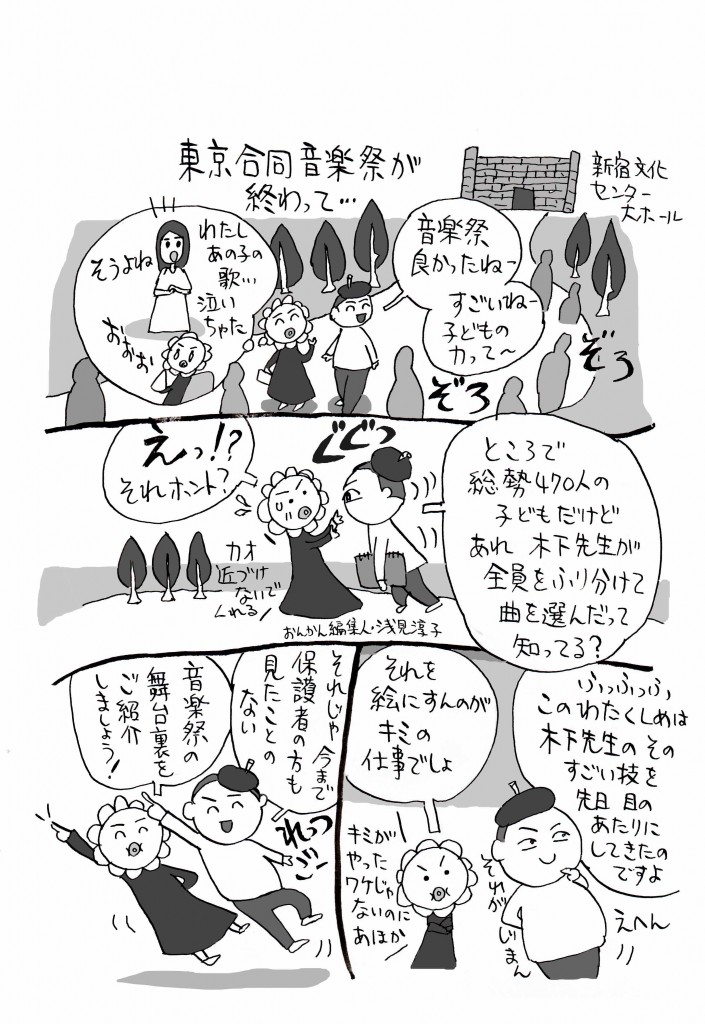 東京合同音楽祭が
終わって…
新宿文化
センター
大ホール
音楽祭
良かったねー
すごいねー
子どもの
力って〜
わたし
あの子の
歌…
泣い
ちゃた
そうよね
おおお
ぞろ
ぞろ
ところで
総勢470人の
子どもだけど
あれ 木下先生が
全員をふり分けて
曲を選んだって
知ってる?
ぐぐっ
えっ!?
それホント?
カオ
近づけ
ないで
くれる
おんかん編集人・浅見淳子
ふっふっふっ
このわたくしめは
木下先生のその
すごい技を
先日 目の
あたりに
してきたの
ですよ
えへん
それがじまん
それを
絵にすんのが
キミの
仕事でしょ
キミが
やった
ワケじゃ
ないのに
あほか
それじゃ 今まで
保護者の方も
見たことの
ない
音楽祭の
舞台裏を
ご紹介
しましょう!
れっつ
ごー